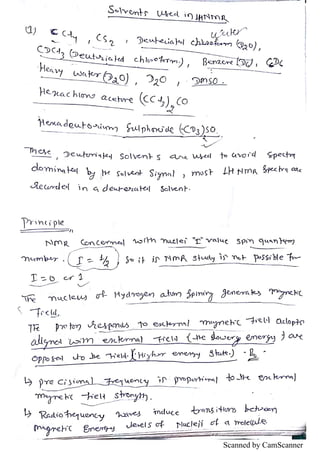 Solvents used in 1HNMR
water
(1) CCl4, CS2, Deuteriated chloroform (D2O),
CDCl3 (Deuteriated chloroform), Benzene
Heavy water (D2O), D2O, DMSO.
Hexachloro acetone (CCl3)2CO
Hexadeutorium Sulphoxide (CD3)2SO.
These, Deuteriated solvents are used to avoid Spectra
dominated by the solvent signal, most 1H NMR Spectra are
recorded in a deuterated solvent.
Principle
NMR concerned with nuclei "I" value spin quantum
number. I = 1/2, so it is NMR study is not possible for
I=0 or 1
The nucleus of Hydrogen atom spining generates magnetic
field.
The proton responds to external magnetic field adopts
aligned with external field (the lowery energy) & are
opposed to the field [Higher energy state.]
↳ precisional frequency is proportional to the external
magnetic field strength.
↳ Radiofrequency waves induce transitions between
magnetic energy levels of Nuclei of a molecule
Scanned by CamScanner